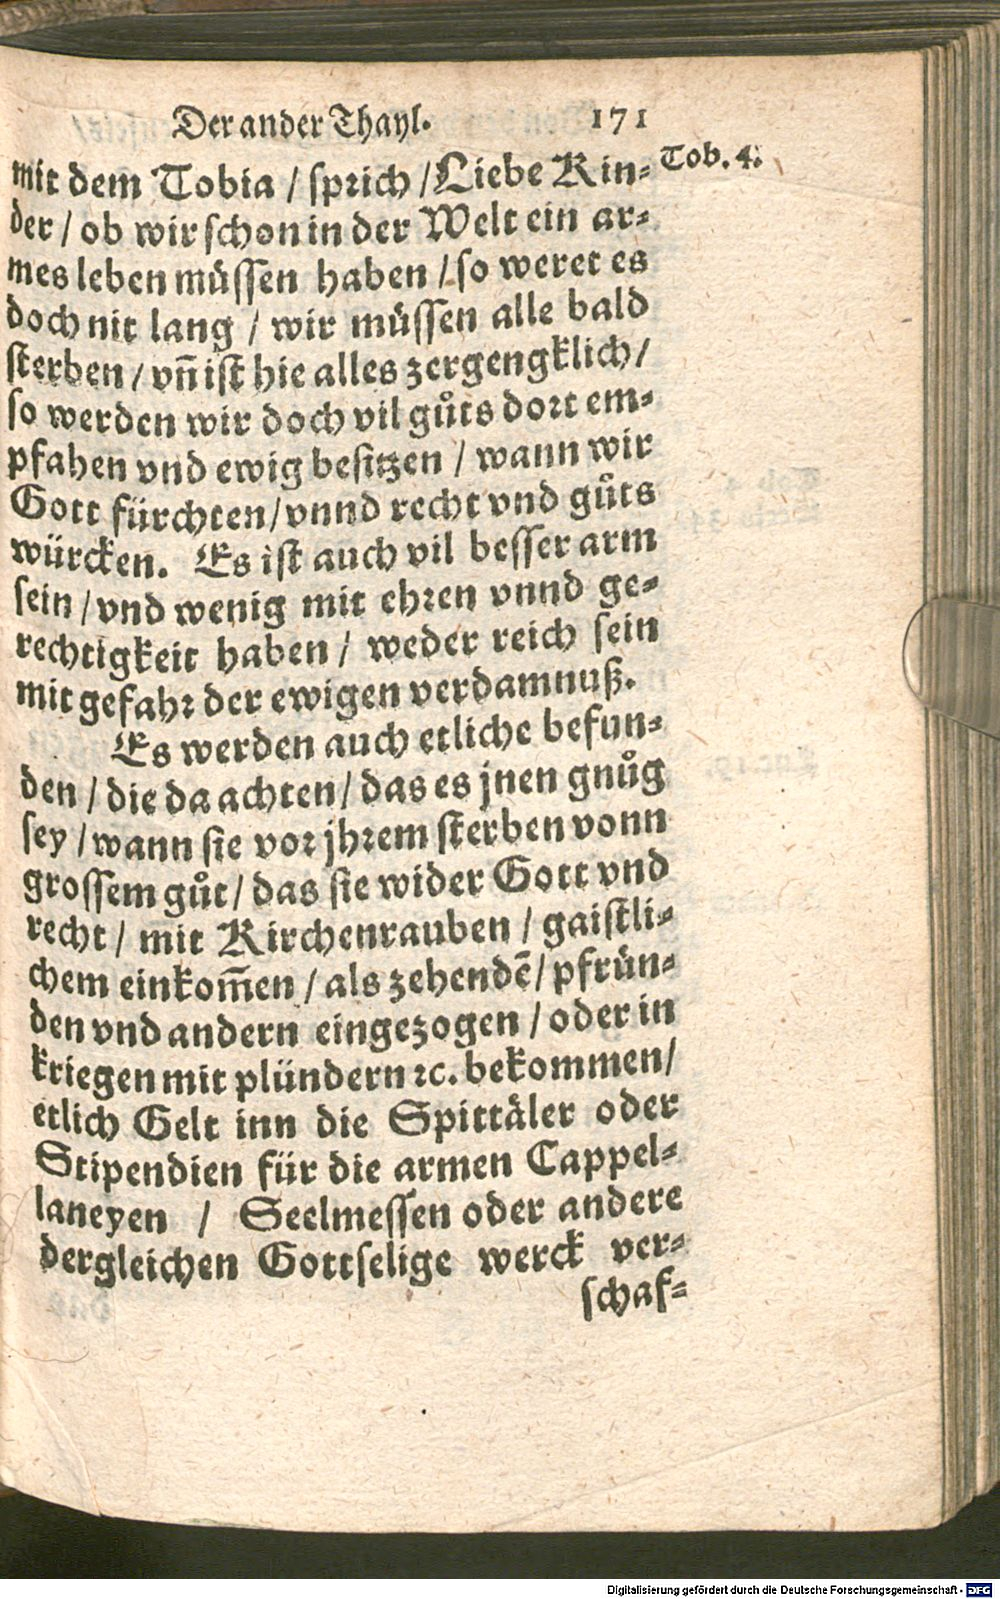 Der ander Thayl. 171
mit dem Tobia / sprich / Liebe Kin⸗ Tob. 4.
der / ob wir schon in der Welt ein ar⸗
mes leben müssen haben / so weret es
doch nit lang / wir müssen alle bald
sterben / vñ ist hie alles zergengklich /
so werden wir doch vil gůts dort em⸗
pfahen vnd ewig besitzen / wann wir
Gott fürchten / vnnd recht vnd gůts
würcken. Es ist auch vil besser arm
sein / vnd wenig mit ehren vnnd ge⸗
rechtigkeit haben / weder reich sein
mit gefahr der ewigen verdamnuß.
Es werden auch etliche befun⸗
den / die da achten / das es jnen gnůg
sey / wann sie vor jhrem sterben vonn
grossem gůt / das sie wider Gott vnd
recht / mit Kirchenrauben / gaistli⸗
chem einkom̃en / als zehendẽ / pfrün⸗
den vnd andern eingezogen / oder in
kriegen mit plündern ꝛc. bekommen /
etlich Gelt inn die Spittäler oder
Stipendien für die armen Cappel⸗
laneyen / Seelmessen oder andere
dergleichen Gottselige werck ver⸗
schaf⸗
Digitalisierung gefördert durch die Deutsche Forschungsgemeinschaft - DFG